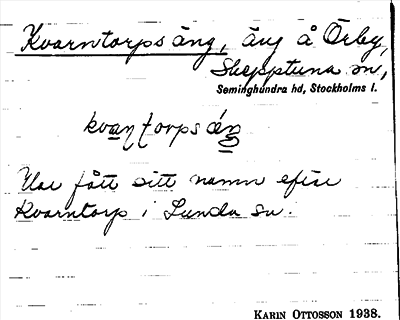 Kvarntorps äng, äng å Örby,
Skepptuna sn,
Seminghundra hd, Stockholms l.
Har fått sitt namn efter
Kvarntorp i Lunda sn.
KARIN OTTOSSON 1938.